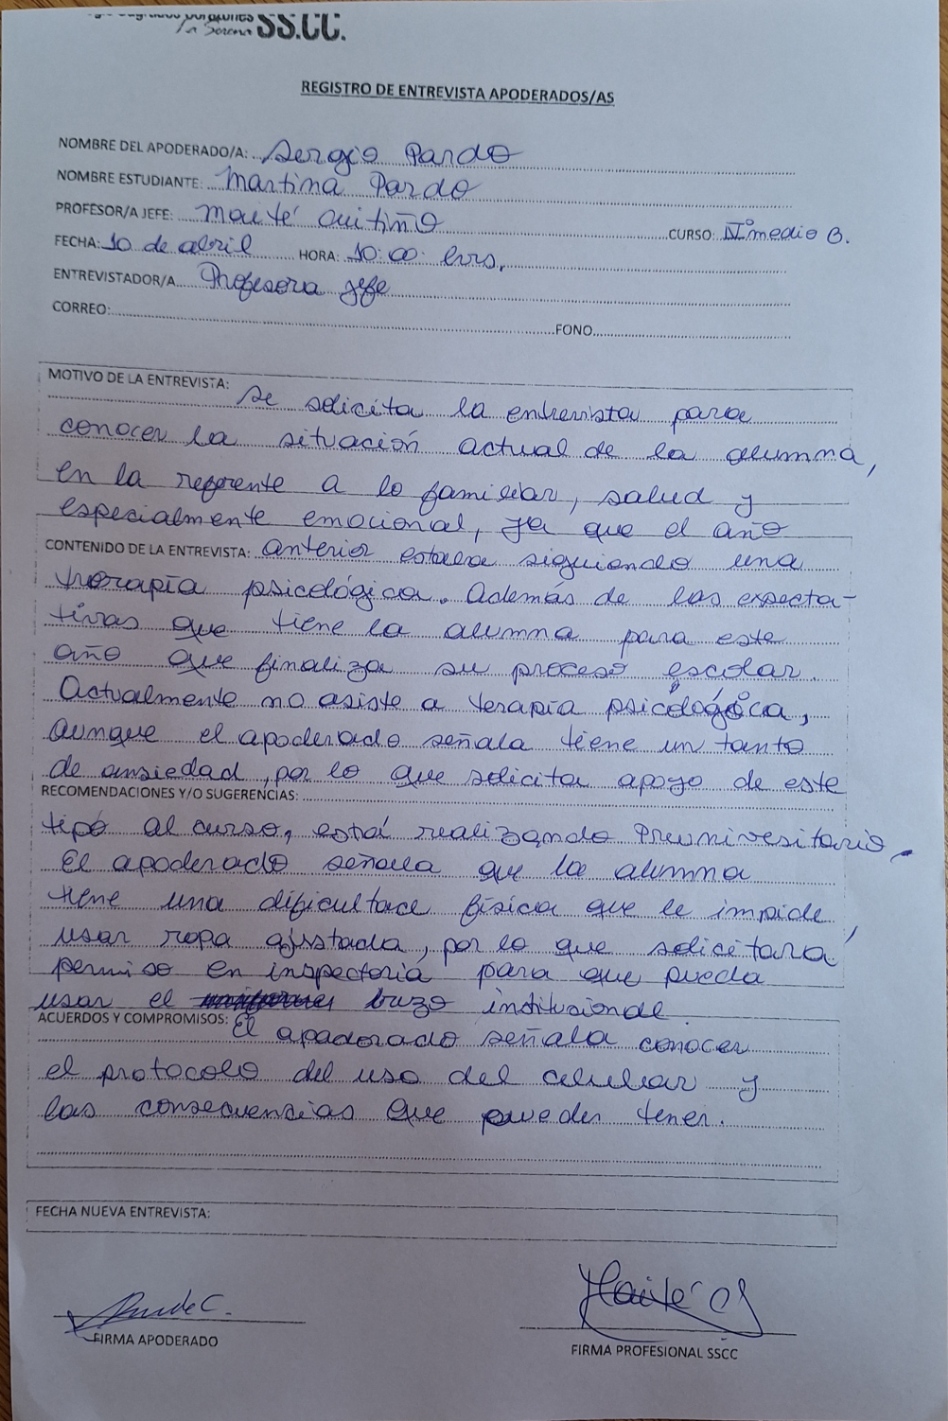 Sagrados Corazones
La Serena SS.CC.
REGISTRO DE ENTREVISTA APODERADOS/AS
NOMBRE DEL APODERADO/A: Sergio Pardo
NOMBRE ESTUDIANTE: Martina Pardo
PROFESOR/A JEFE: Maité Cuitiño CURSO: IVº medio B.
FECHA: 10 de abril HORA: 10:00 hrs,
ENTREVISTADOR/A Profesora jefe
CORREO: FONO
MOTIVO DE LA ENTREVISTA:
Se solicita la entrevista para
conocer la situación actual de la alumna,
en la referente a lo familiar, salud y
especialmente emocional, ya que el año
CONTENIDO DE LA ENTREVISTA: anterior estaba siguiendo una
terapia psicológica. Además de las expecta-
tivas que tiene la alumna para este
año que finaliza su proceso escolar.
Actualmente no asiste a terapia psicológica,
aunque el apoderado señala tiene un tanto
de ansiedad, por lo que solicita apoyo de este
RECOMENDACIONES Y/O SUGERENCIAS:
tipo al curso, está realizando Preuniversitario.
El apoderado señala que la alumna
tiene una dificultad física que le impide
usar ropa ajustada, por lo que solicitará
permiso en inspectoría para que pueda
usar el buzo institucional.
ACUERDOS Y COMPROMISOS: El apoderado señala conocer
el protocolo del uso del celular y
las consecuencias que pueden tener.
FECHA NUEVA ENTREVISTA:
Maité
FIRMA APODERADO
FIRMA PROFESIONAL SSCC